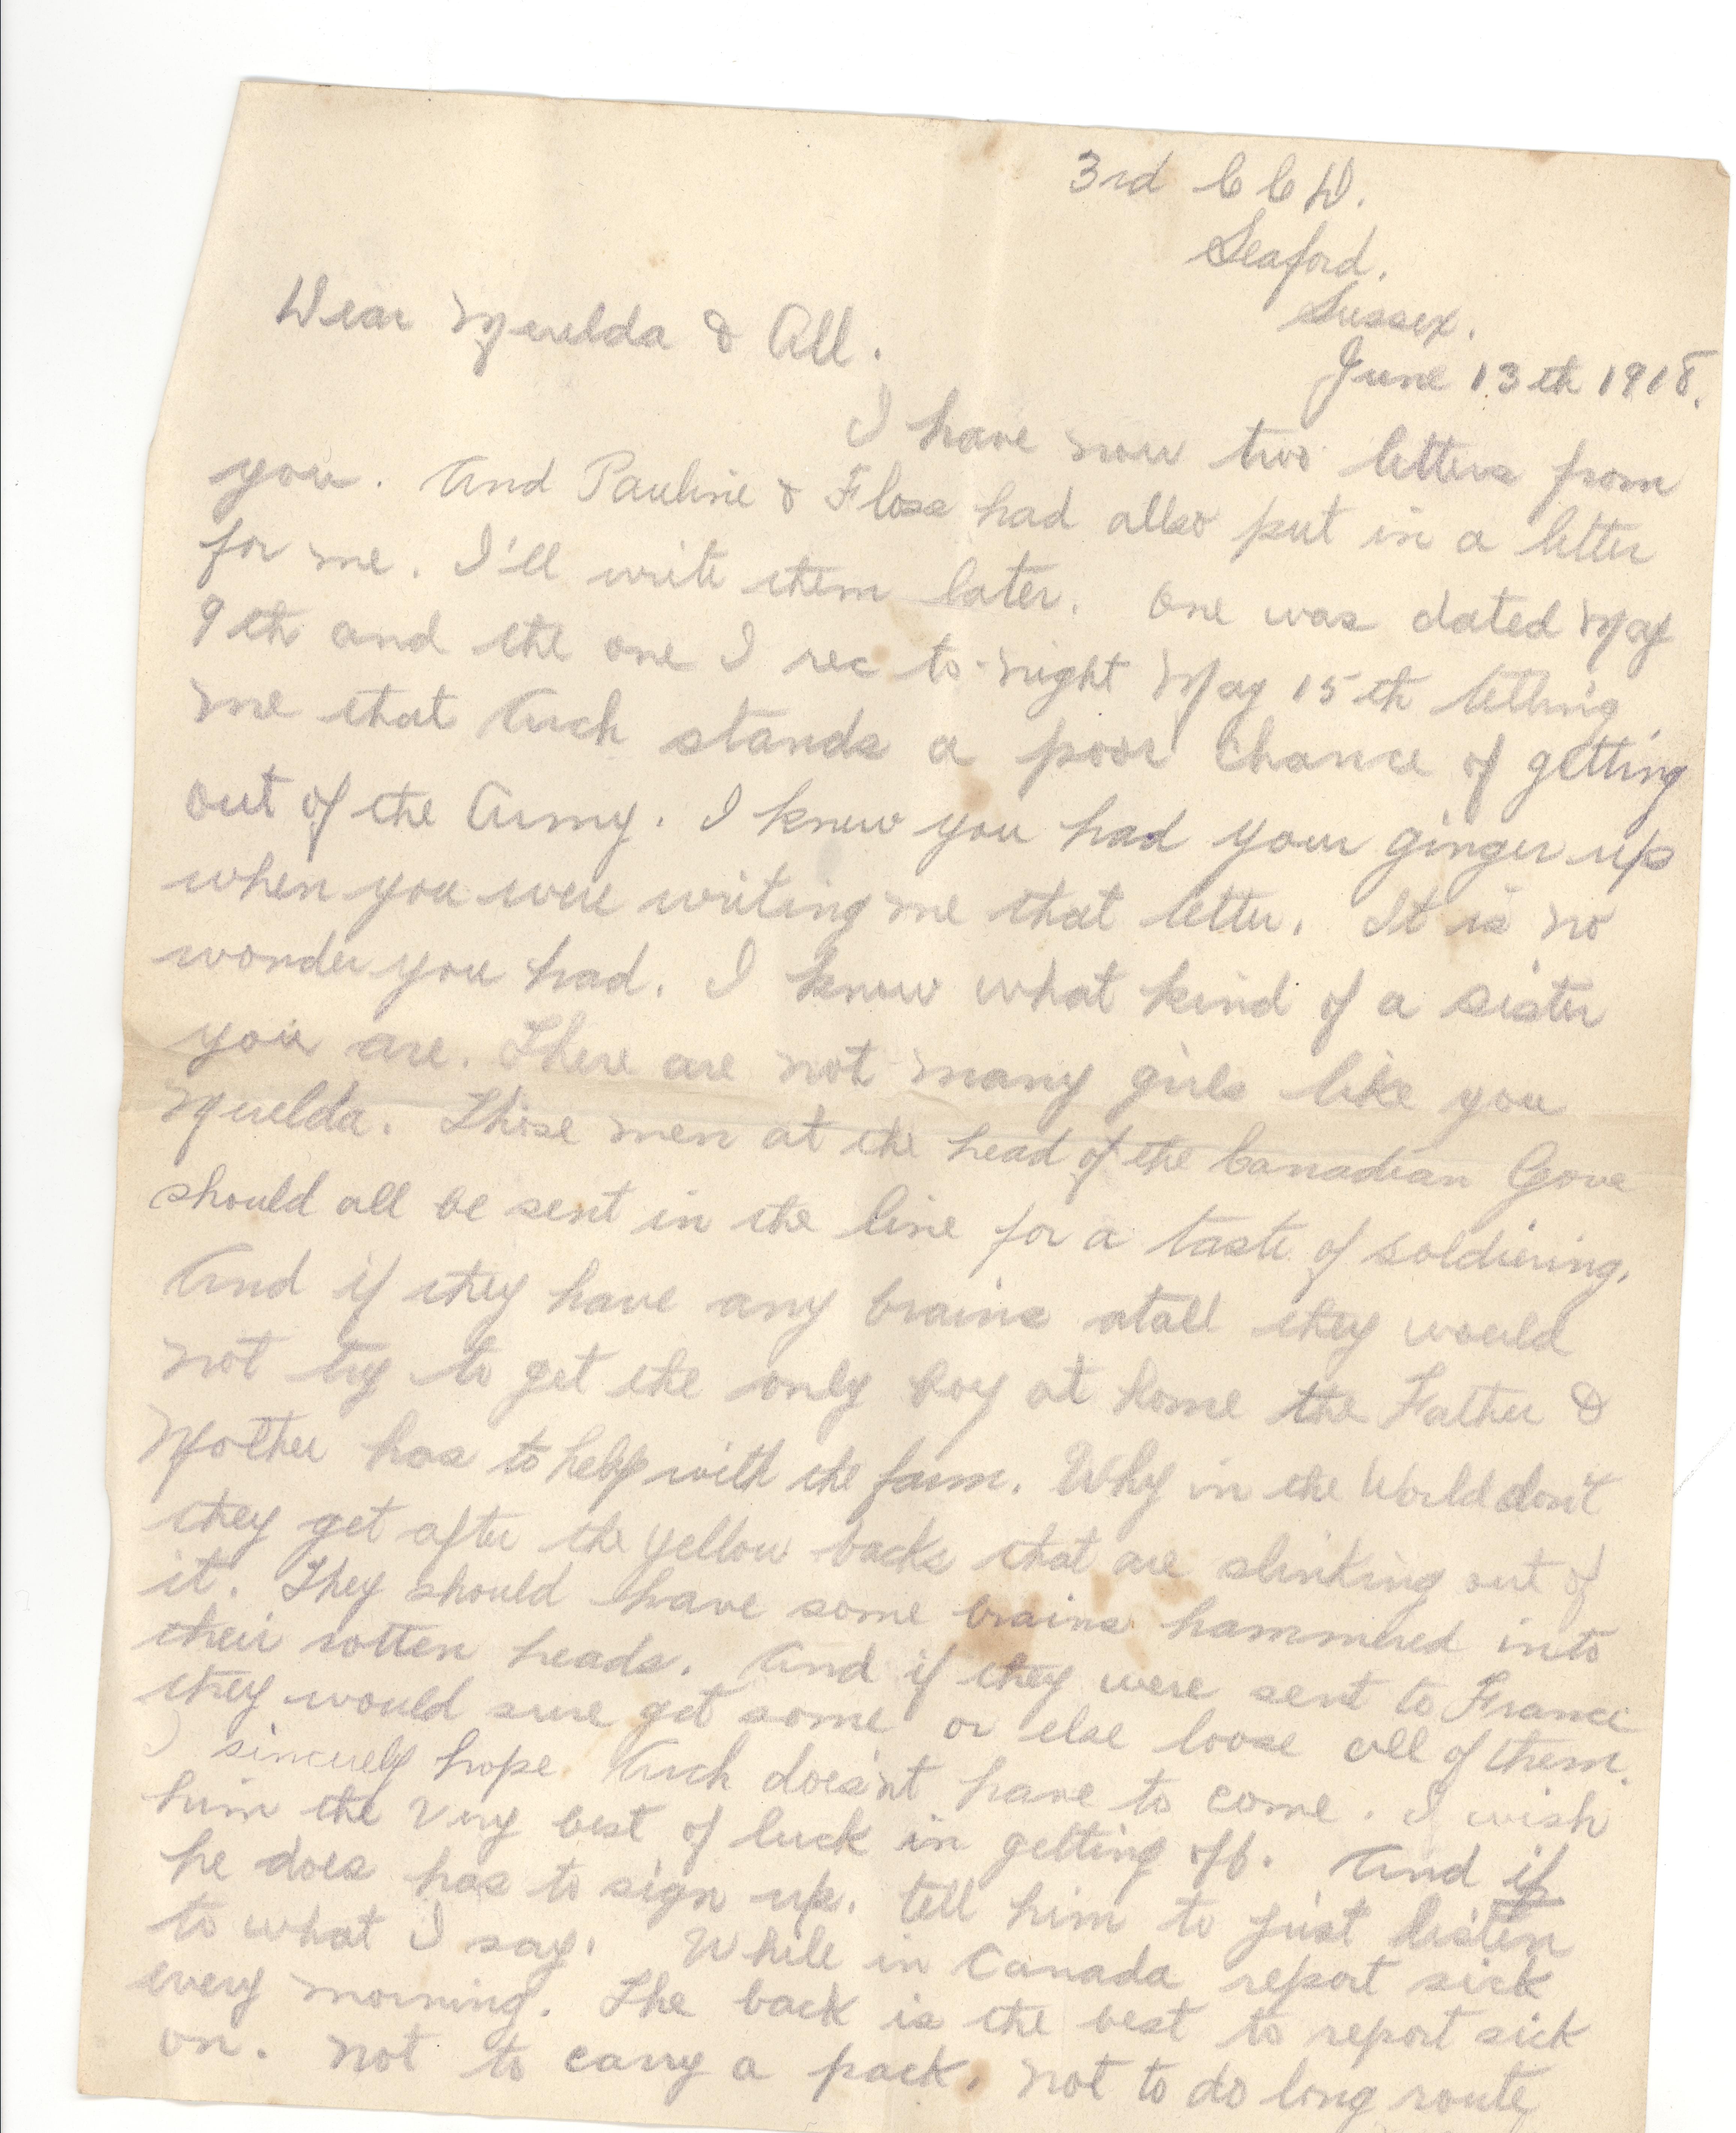 3rd C C D.
Seaford.
Sussex.
June 13th 1918.
Dear Merelda & All.
I have now two letters from
you. And Pauline & Floss had allso put in a letter
for me. I'll write them later. One was dated May
9th and the one I rec to-night May 15th letting
me that Arch stands a poor chance of getting
out of the Army. I knew you had your ginger up
when you were writing me that letter. It is no
wonder you had. I know what kind of a sister
you are. There are not many girls like you
Merelda. Those men at the head of the Canadian Gove
should all be sent in the line for a taste of soldiering.
And if they have any brains atall they would
not try to get the only boy at home the Father &
Mother has to help with the farm. Why in the World don't
they get after the yellow backs that are slinking out of
it. They should have some brains hammered into
their rotten heads. And if they were sent to France
they would sure get some or else loose all of them.
I sincerely hope Arch does'nt have to come. I wish
him the very best of luck in getting off. And if
he does has to sign up. tell him to just listen
to what I say. While in Canada report sick
every morning. The back is the best to report sick
on. not to carry a pack. not to do long route